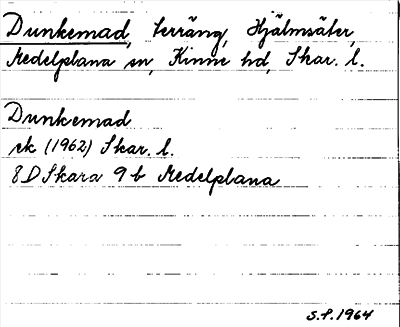 Dunkemad, terräng, Hjälmsäter,
Medelplana sn, Kinne hd, Skar. l.
Dunkemad
ek (1962) Skar. l.
8D Skara 9b Medelplana
S.P. 1964